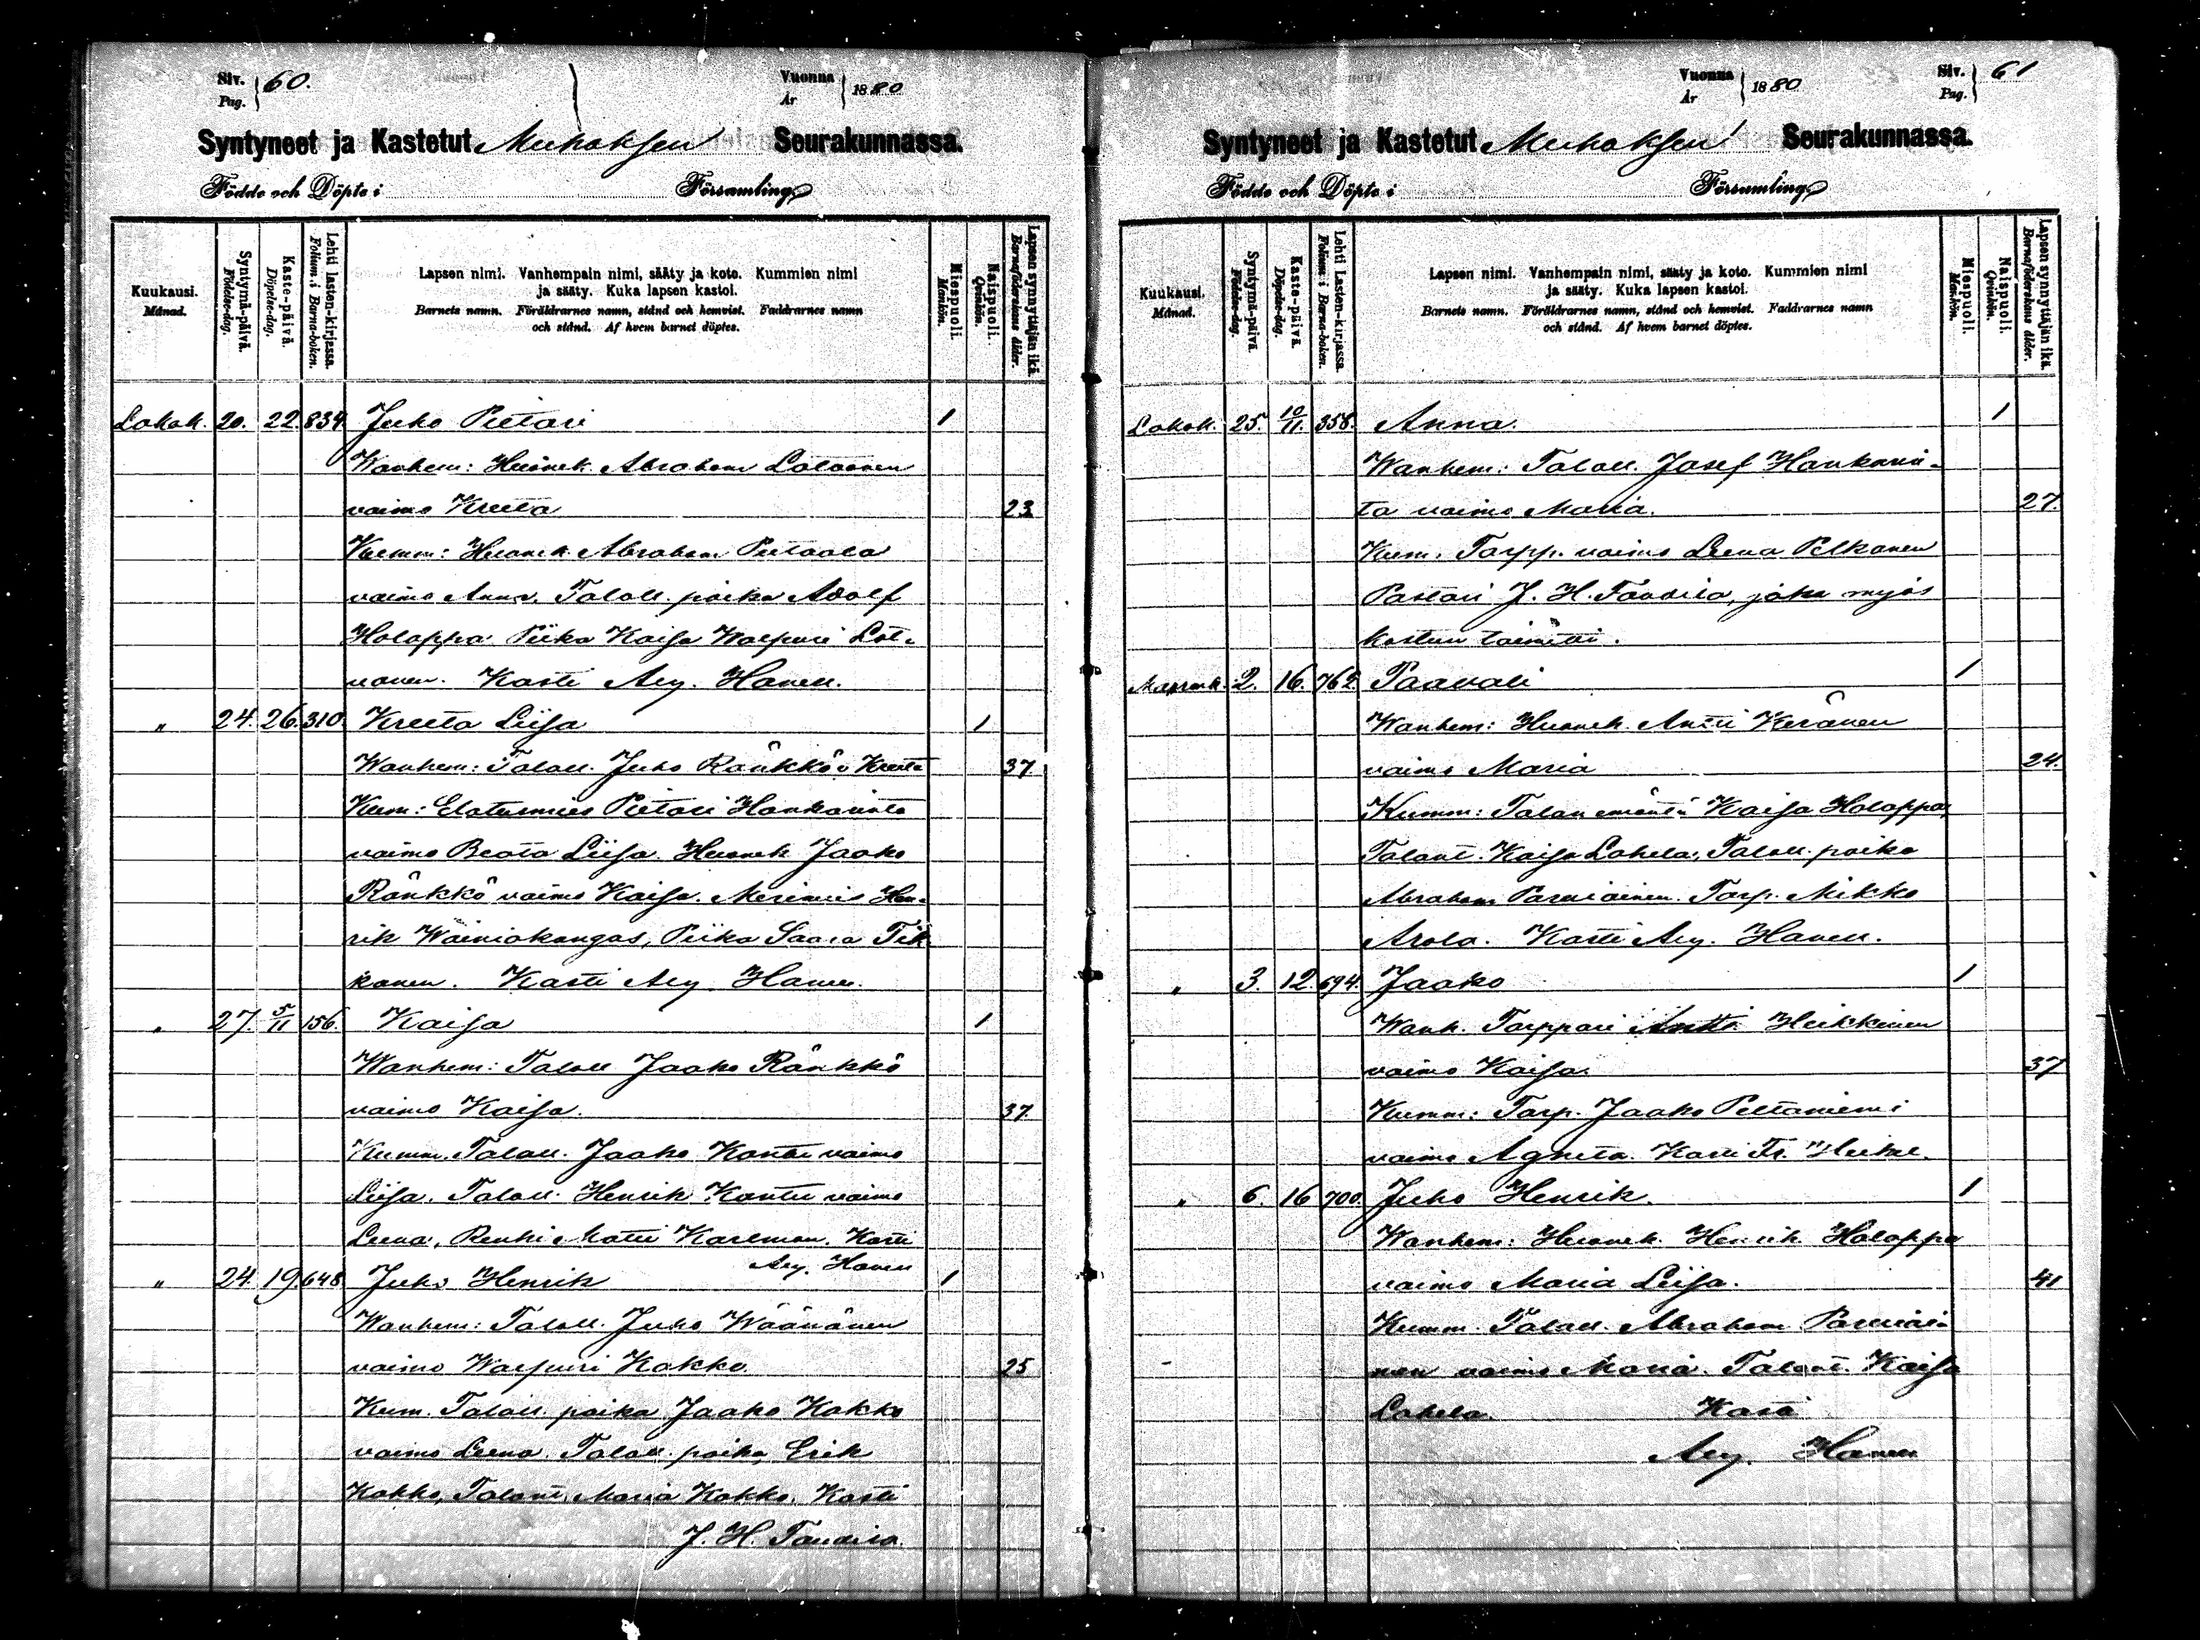 Siv. Pag. 60. Vuonna År 1880
Syntyneet ja Kastetut Muhoksen Seurakunnassa.
Födde och Döpte i Församling
Kuukausi. Månad. Syntymä-päivä. Födelse-dag. Kaste-päivä. Döpelse-dag. Lehti lasten-kirjassa. Folium i Barna-boken. Lapsen nimi. Vanhempain nimi, sääty ja koto. Kummien nimi ja sääty. Kuka lapsen kastoi. Barnets namn. Föräldrarnes namn, stånd och hemvist. Faddrarnes namn och stånd. Af hvem barnet döptes. Miespuoli. Mankön. Naispuoli. Qvinkön. Lapsen synnyttäjän ikä. Barnaföderskans ålder.
Lokak. 20. 22. 834. Juho Pietari 1
Wanhem: Huonek. Abraham Lotvonen
vaimo Kreeta 23
Kumm: Huonek. Abraham Pietaala
vaimo Anna. Taloll. poika Adolf
Holappa. Piika Kaisa Walpuri Lot-
vonen. Kasti Aug. Hanell.
" 24. 26. 310. Kreeta Liisa 1
Wanhem: Taloll. Juho Ränkkö v. Kreeta 37.
Kum: Elatusmies Pietari Hankavirta
vaimo Beata Liisa. Huonek Jaako
Ränkkö vaimo Kaisa. Merimies Hen-
rik Wäiniokangas, Piika Saara Tik
kanen. Kasti Aug. Hanell.
" 27. 5/11 156. Kaisa 1
Wanhem: Taloll Jaako Ränkkö
vaimo Kaisa. 37.
Kumm. Taloll. Jaako Kontti vaimo
Liisa. Taloll. Henrik Kontti vaimo
Leena, Renki Matti Karlman. Kasti
Aug. Hanell
" 24. 19. 648. Juho Henrik 1
Wanhem: Taloll. Juho Wäänänen
vaimo Walpuri Kokko. 25
Kum. Taloll. poika Jaako Kokko
vaimo Leena. Taloll. poika Erik
Kokko, Talont. Maria Kokko. Kasti
J. H. Tandila.
Vuonna År 1880 Siv. Pag. 61
Syntyneet ja Kastetut Muhoksen Seurakunnassa.
Födde och Döpte i Församling
Kuukausi. Månad. Syntymä-päivä. Födelse-dag. Kaste-päivä. Döpelse-dag. Lehti Lasten-kirjassa. Folium i Barna-boken. Lapsen nimi. Vanhempain nimi, sääty ja koto. Kummien nimi ja sääty. Kuka lapsen kastoi. Barnets namn. Föräldrarnes namn, stånd och hemvist. Faddrarnes namn och stånd. Af hvem barnet döptes. Miespuoli. Mankön. Naispuoli. Qvinkön. Lapsen synnyttäjän ikä. Barnaföderskans ålder.
Lokak. 25. 10/11. 358. Anna. 1
Wanhem: Taloll. Josef Hankavir-
ta vaimo Maria. 27.
Kum. Torpp. vaimo Leena Pelkonen
Pastori J. H. Tandila, joka myös
kasteen toimitti.
Marrask. 2. 16. 762. Paavali 1
Wanhem: Huonek. Antti Keränen
vaimo Maria 24.
Kumm: Talon emäntä Kaisa Holappa,
Talont. Kaisa Lahela, Taloll. poika
Abraham Parviainen. Torp. Mikko
Arola. Kasti Aug. Hanell.
" 3. 12. 694. Jaako 1
Wanh. Torppari Antti Heikkinen
vaimo Kaisa. 37
Kumm: Torp. Jaako Peltoniemi
vaimo Agneta. Kasti Fr. Heikel.
" 6. 16 700. Juho Henrik. 1
Wanhem: Huonek. Henrik Holappa
vaimo Maria Liisa. 41
Kumm. Taloll. Abraham Parviai-
nen vaimo Maria. Talont. Kaisa
Lahela. Kasti
Aug. Hanell